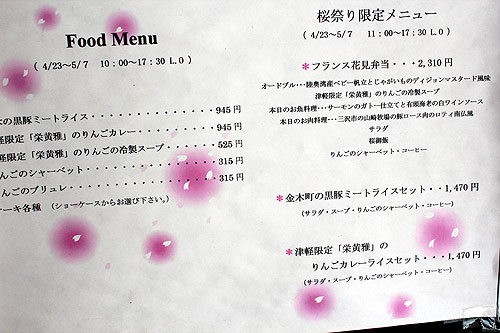 Food Menu
( 4/23～5/7 10：00～17：30 L.O )
の黒豚ミートライス・・・・・・・・・・・・・945円
軽限定「栄黄雅」のりんごカレー・・・・・・・・945円
軽限定「栄黄雅」のりんごの冷製スープ・・・・・525円
んごのシャーベット・・・・・・・・・・・・・315円
んごのブリュレ・・・・・・・・・・・・・・・315円
ーキ各種 （ショーケースからお選び下さい。）
桜祭り限定メニュー
( 4/23～5/7 11：00～17：30 L.O )
＊フランス花見弁当・・・2,310円
オードブル・・・陸奥湾産ベビー帆立とじゃがいものディジョンマスタード風味
津軽限定「栄黄雅」のりんごの冷製スープ
本日のお魚料理・・・サーモンのガトー仕立てと有頭海老の白ワインソース
本日のお肉料理・・・三沢市の山崎牧場の豚ロース肉のロティ南仏風
サラダ
桜御飯
りんごのシャーベット・コーヒー
＊金木町の黒豚ミートライスセット・・1,470円
（サラダ・スープ・りんごのシャーベット・コーヒー）
＊津軽限定「栄黄雅」の
りんごカレーライスセット・・・1,470円
（サラダ・スープ・りんごのシャーベット・コーヒー）